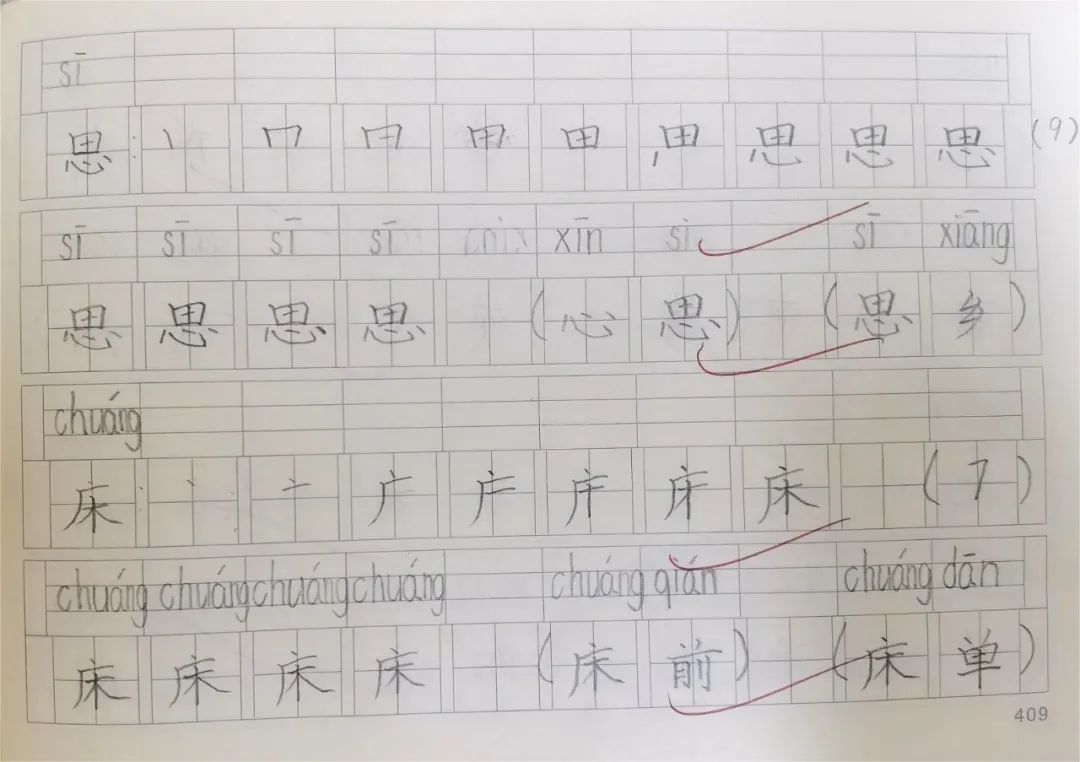 sī
思：丨 冂 日 田 田 思 思 思 思 (9)
sī sī sī sī xīn si sī xiāng
思 思 思 思 (心 思) (思 乡)
chuáng
床：丶 亠 广 床 (7)
chuáng chuáng chuáng chuáng chuáng qián chuáng dān
床 床 床 床 (床 前) (床 单)
409